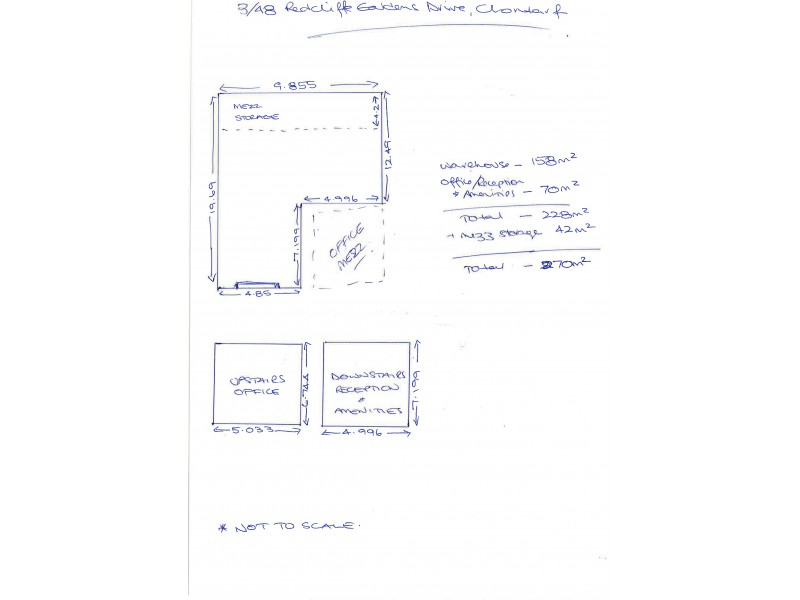 3/48 Redcliffe Gardens Drive, Clontarf
9.855
MEZZ
STORAGE
4.27
12.49
19.69
4.996
7.199
OFFICE
MEZZ
4.85
Warehouse - 158m²
Office/Reception
+ Amenities - 70m²
Total - 228m²
+ Mezz Storage 42m²
Total - 270m²
UPSTAIRS
OFFICE
6.744
5.033
DOWNSTAIRS
RECEPTION
&
AMENITIES
7.199
4.996
* NOT TO SCALE.